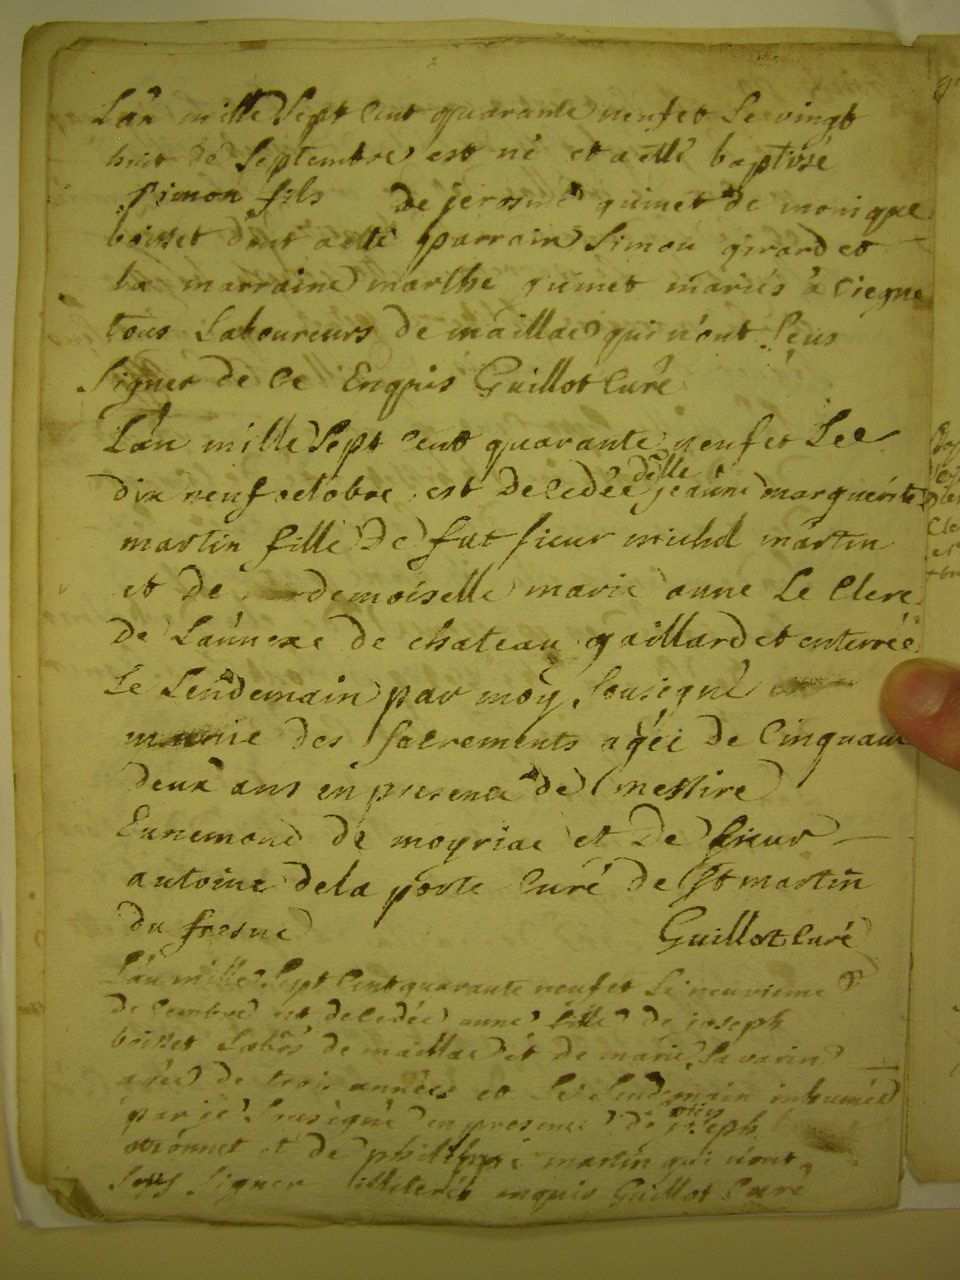 Lan mille Sept Cent quarante neuf et Le vingt
huit de Septembre est né et a eté baptisé
Simon fils de jerosme guinet de monique
boisset dont a eté parrain Simon girard et
La marraine marthe guinet mariés à Ciegne
tous Laboureurs de maillac qui n'ont Sçus
Signer de Ce Enquis Guillot Curé
Lan mille Sept Cent quarante neuf et Le
dix neuf octobre est decedée delle jeanne marguerite
martin fille de fut sieur michel martin
et de demoiselle marie anne Le Clerc
de Lannexe de chateau gaillard et enterrée
Le Lendemain par moy Sousigné
munie des sacrements agée de Cinquante
deux ans en presence de messire
Ennemond de moyriac et de sieur
antoine de la porte Curé de St martin
du fresne Guillot Curé
Lan mille Sept Cent quarante neuf et Le neuvieme
decembre est decedée anne fille de joseph
boisset Labrs de maillac et de marie Savarin
agée de trois années et Le Lendemain inhumée
par je Sousigné en presence de joseph
et de philippe martin qui n'ont
Sçus Signer enquis Guillot Curé